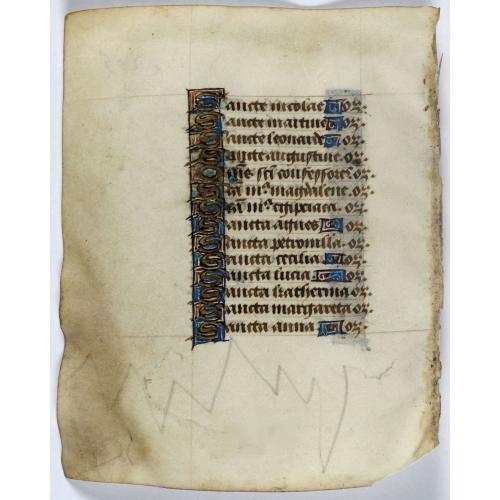 Sancte nicolae oꝝ.
Sancte martine oꝝ.
Sancte leonarde oꝝ.
Sancte augustine. oꝝ.
Oms sci confessores oꝝ.
Sca mᵃ. magdalene. oꝝ.
Sca mᵃ. egipciaca. oꝝ.
Sancta agnes oꝝ.
Sancta petronilla. oꝝ.
Sancta cecilia oꝝ.
Sancta lucia. oꝝ.
Sancta katherina oꝝ.
Sancta margareta oꝝ.
Sancta anna oꝝ.